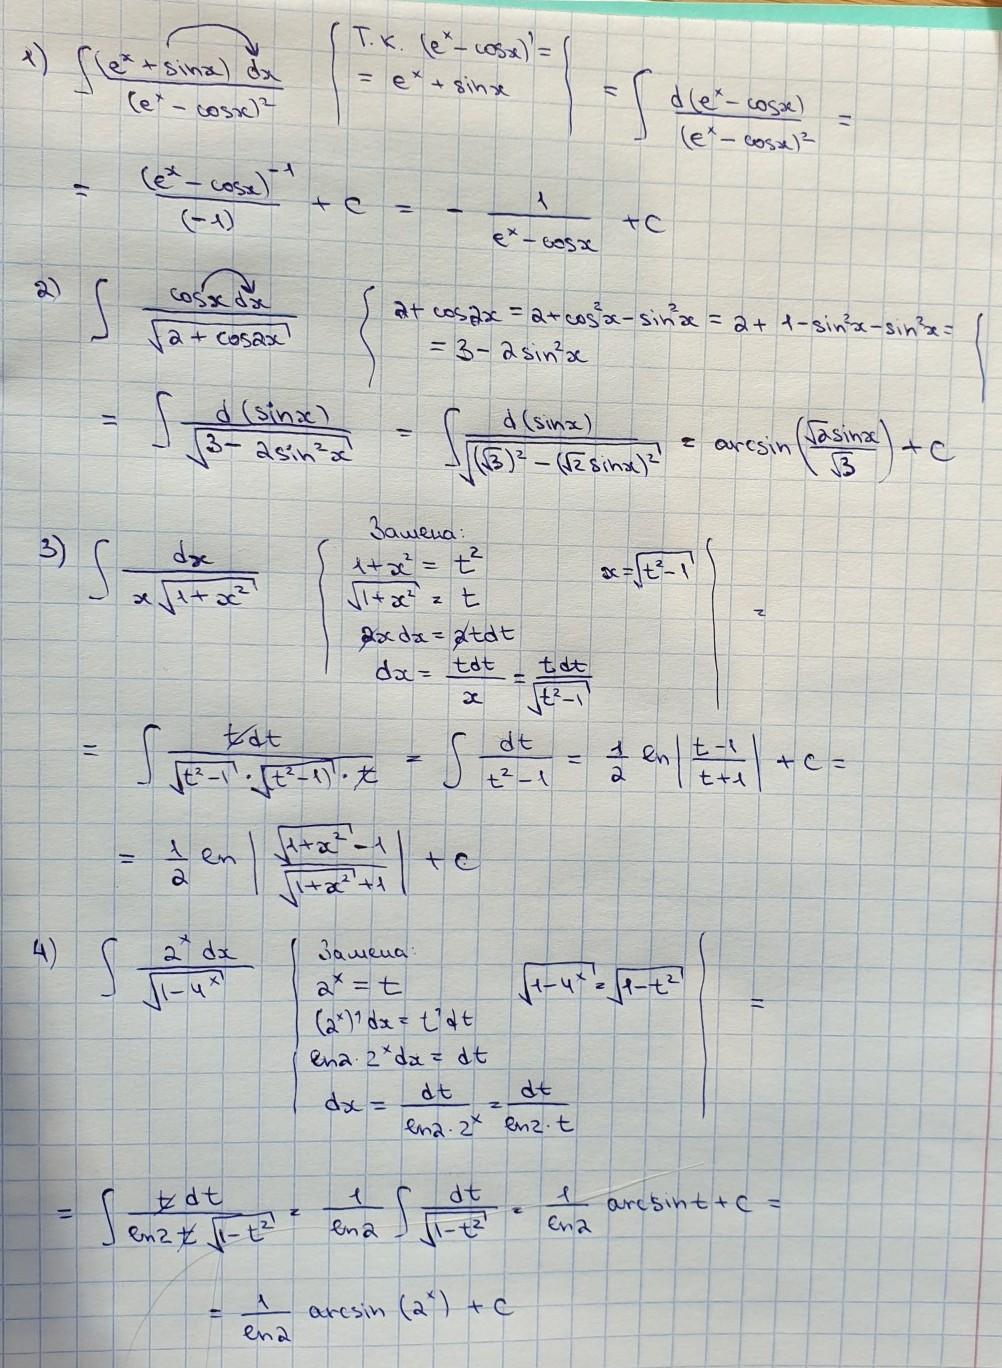 1) ∫ (eˣ + sinx) dx / (eˣ - cosx)² { т.к. (eˣ - cosx)' =
= eˣ + sinx { = ∫ d(eˣ - cosx) / (eˣ - cosx)² =
= (eˣ - cosx)⁻¹ / (-1) + C = - 1 / (eˣ - cosx) + C
2) ∫ cosx dx / √(2 + cos2x) { 2 + cos2x = 2 + cos²x - sin²x = 2 + 1 - sin²x - sin²x =
= 3 - 2sin²x {
= ∫ d(sinx) / √(3 - 2sin²x) = ∫ d(sinx) / √((√3)² - (√2 sinx)²) = arcsin(√2 sinx / √3) + C
3) ∫ dx / (x√(1+x²)) { Замена:
1+x² = t² x = √(t²-1)
√(1+x²) = t
2xdx = 2tdt
dx = tdt / x = tdt / √(t²-1) { =
= ∫ tdt / (√(t²-1) · √(t²-1) · t) = ∫ dt / (t²-1) = 1/2 ln|(t-1)/(t+1)| + C =
= 1/2 ln|(√(1+x²) - 1) / (√(1+x²) + 1)| + C
4) ∫ 2ˣ dx / √(1-4ˣ) { Замена:
2ˣ = t √(1-4ˣ) = √(1-t²) { =
(2ˣ)' dx = t' dt
ln2 · 2ˣ dx = dt
dx = dt / (ln2 · 2ˣ) = dt / (ln2 · t)
= ∫ t dt / (ln2 t √(1-t²)) = 1/ln2 ∫ dt / √(1-t²) = 1/ln2 arcsint + C =
= 1/ln2 arcsin(2ˣ) + C